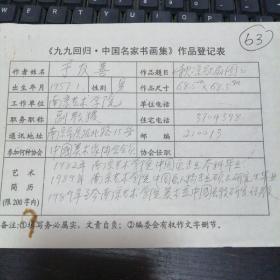 63
《九九回归·中国名家书画集》作品登记表
作者姓名 于友善 作品题目
出生年月 1957.1 性别 男 作品尺寸 68.5cm×68.5cm
工作单位 南京艺术学院 单位电话
职务职称 副教授 住宅电话
通讯地址 南京 15号 邮编 210013
参加何种协会 中国美术家协会会员 协会任职
艺术
简历
(限200字内)
1982年 南京艺术学院中国画专业本科毕业
1989年 南京艺术学院中国画人物专业硕士研究生毕业
1989年至今南京艺术学院美术系中国画教研室任教
备注:①填写务必属实,文责自负;②编委会有权作文字删节。